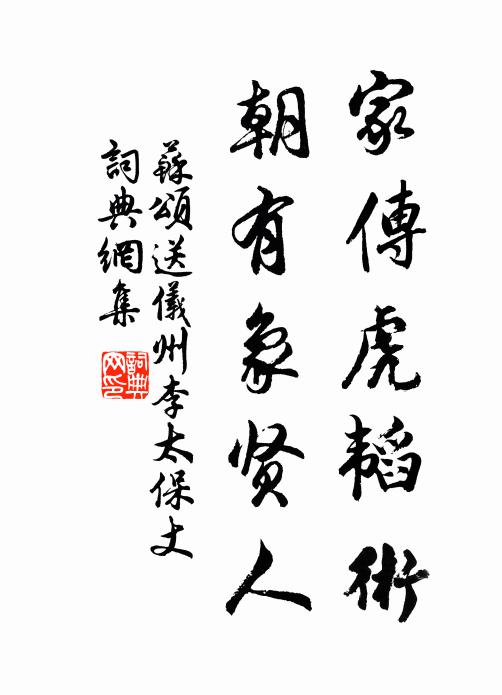 家傳虎韬術
朝有象贤人
蘇頌送儀州李太保丈
詞典網集
詞典网印